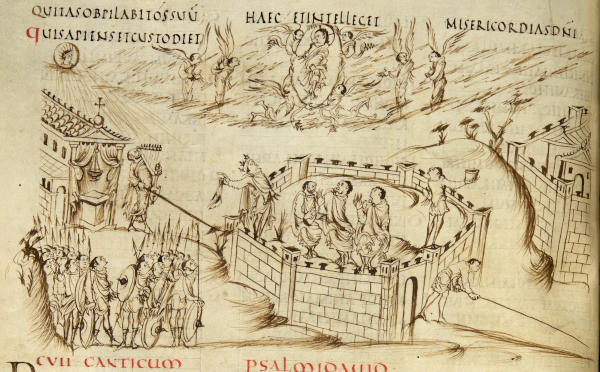 QUITASOBPILABITOSSUŪ
QUISAPIENSETCUSTODIET
HAEC ETINTELLEGET
MISERICORDIASDN̄I
CVII CANTICUM PSALMIDAUID